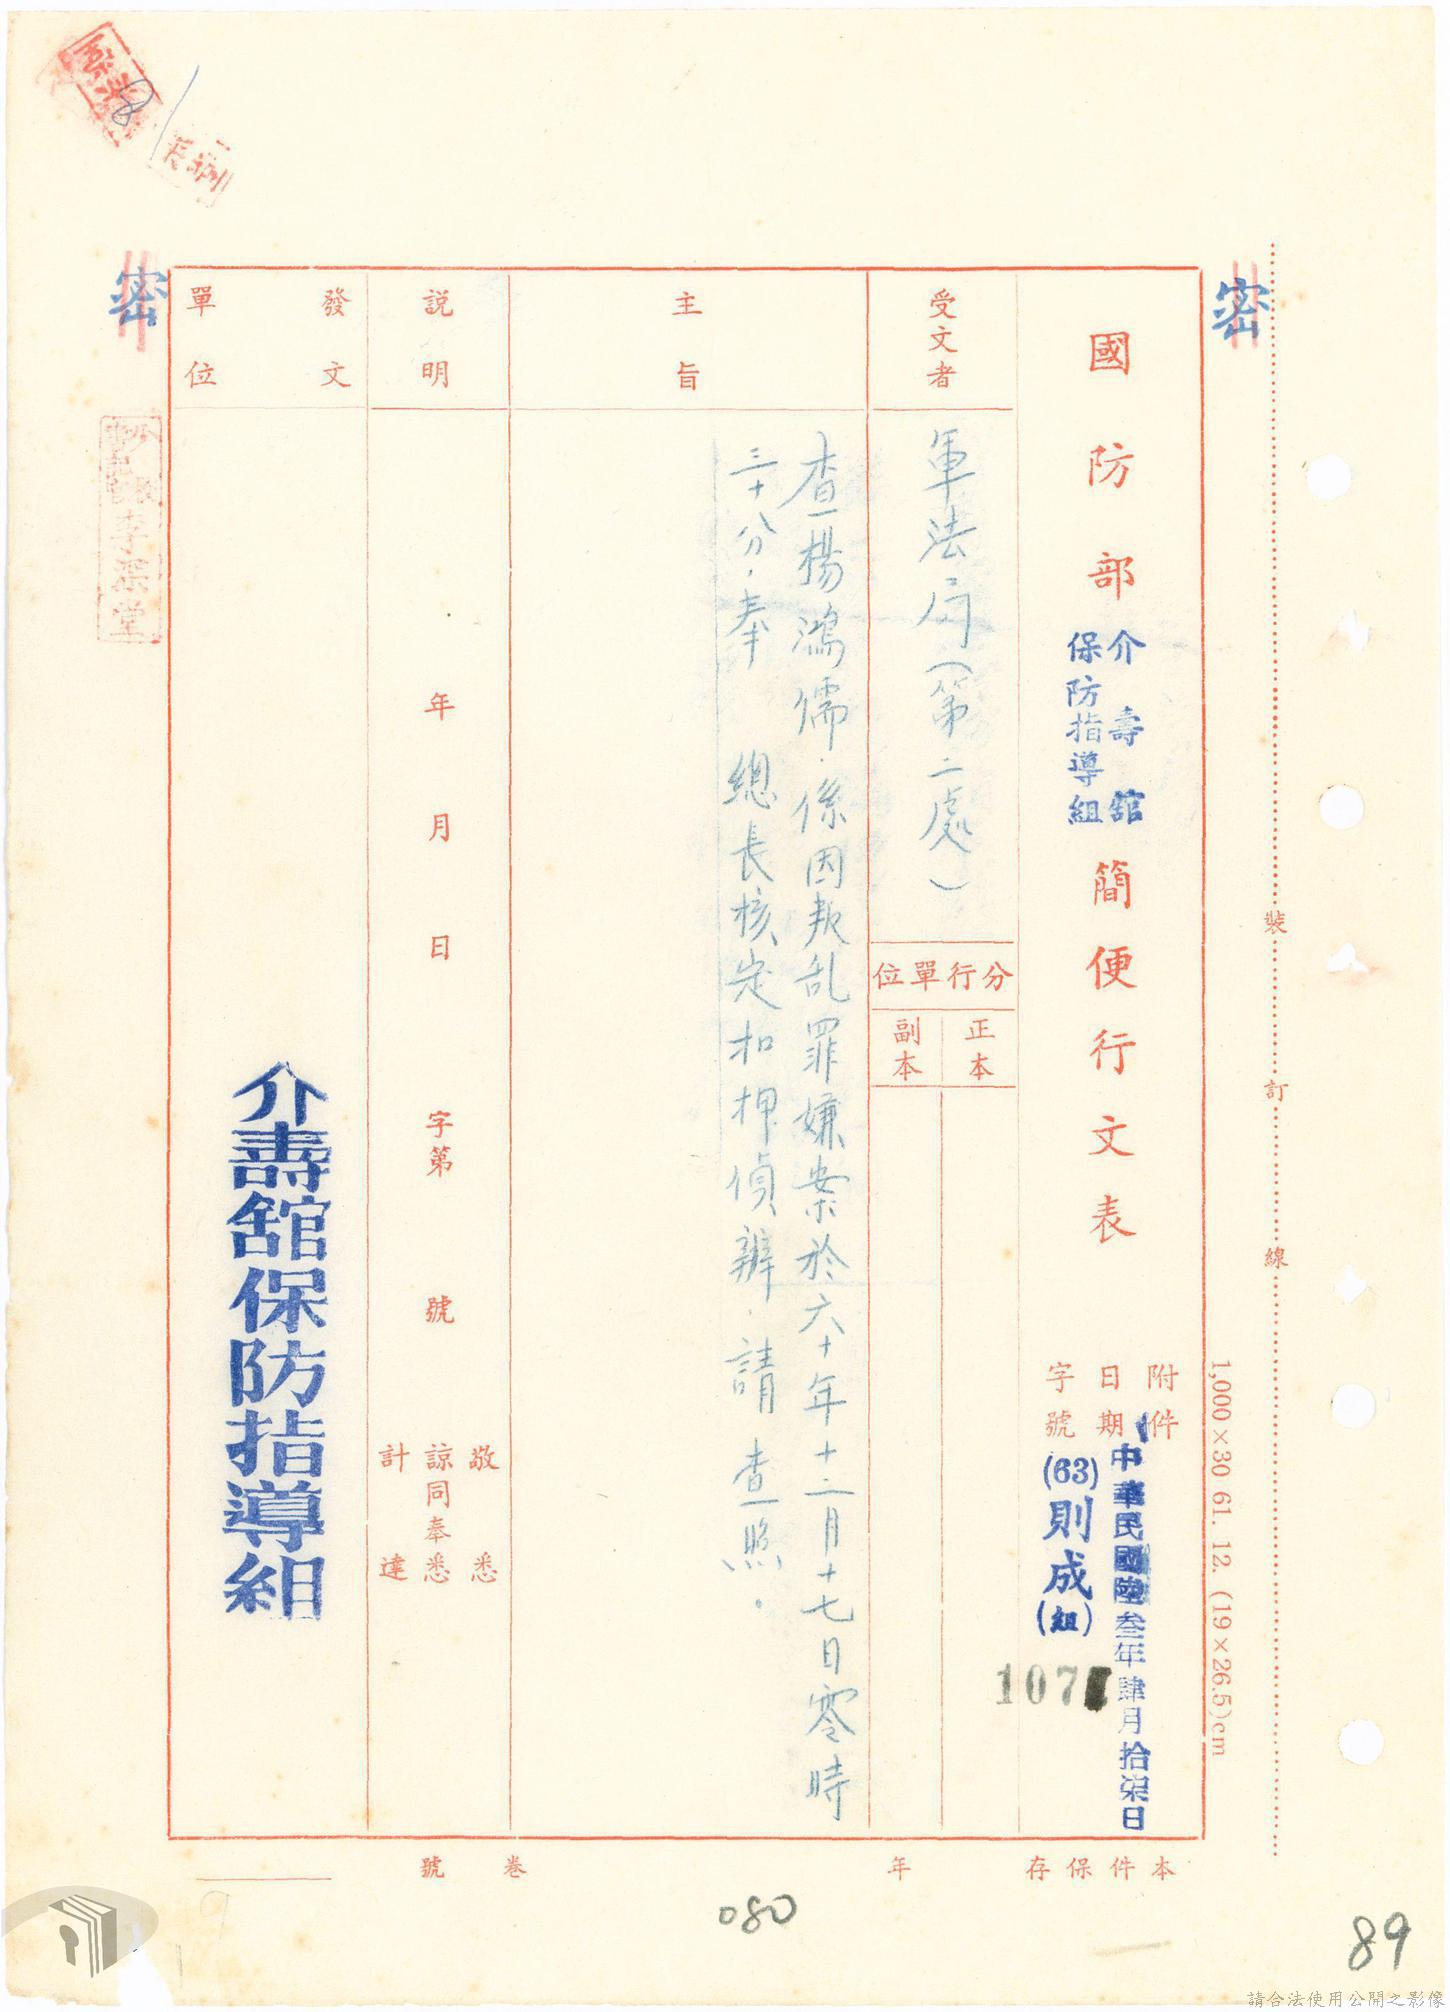 密
密
國防部介壽舘保防指導組簡便行文表
附件
日期 中華民國陸叁年肆月拾柒日
字號 (63)則成(組)
107
受文者
軍法局(第二處)
分行單位
正本
副本
主旨
查楊鴻儒.係因叛乱罪嫌案於六十年十二月十七日零時
三十分.奉 總長核定扣押偵辦.請 查照.
說明
年 月 日 字第 號
敬悉
諒同奉悉
計達
發文單位
介壽舘保防指導組
李 堂
裝
訂
線
1,000×30 61. 12. (19×26.5)cm
本件保存 年
卷
號
080
89
請合法使用公開之影像